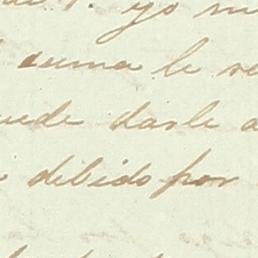 yo
suma le re
uede darle a
debido por